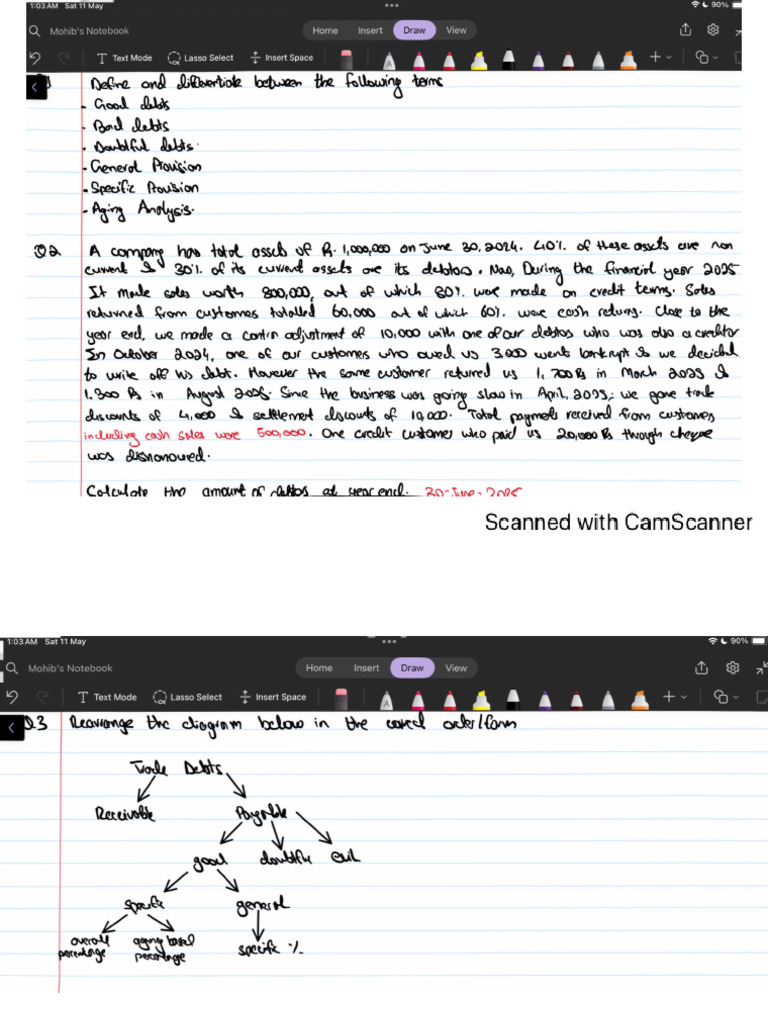 1:03 AM Sat 11 May
90%
Mohib's Notebook
Home Insert Draw View
Text Mode Lasso Select Insert Space
Define and differentiate between the following terms
- Good debts
- Bad debts
- Doubtful debts.
- General Provision
- Specific Provision
- Aging Analysis.
Q2 A company has total assets of Rs. 1,000,000 on June 30, 2024. 40% of these assets are non
current & 30% of its current assets are its debtors. Now, During the financial year 2025
It made sales worth 800,000, out of which 80% were made on credit terms. Sales
returned from customers totalled 60,000 out of which 60% were cash returns. Close to the
year end, we made a contra adjustment of 10,000 with one of our debtors who was also a creditor
In October 2024, one of our customers who owed us 3,000 went bankrupt & we decided
to write off his debt. However the same customer returned us 1,700 Rs in March 2025 &
1,300 Rs in August 2025. Since the business was going slow in April, 2025, we gave trade
discounts of 4,000 & settlement discounts of 10,000. Total payments received from customers
including cash sales were 500,000. One credit customer who paid us 20,000 Rs through cheque
was dishonoured.
Calculate the amount of debtors at year end. 30-June-2025
Scanned with CamScanner
1:03 AM Sat 11 May
90%
Mohib's Notebook
Home Insert Draw View
Text Mode Lasso Select Insert Space
Q.3 Rearrange the diagram below in the correct order/form
Trade Debts
Receivable Payable
good doubtful evil
specific general
overall percentage aging based percentage specific %